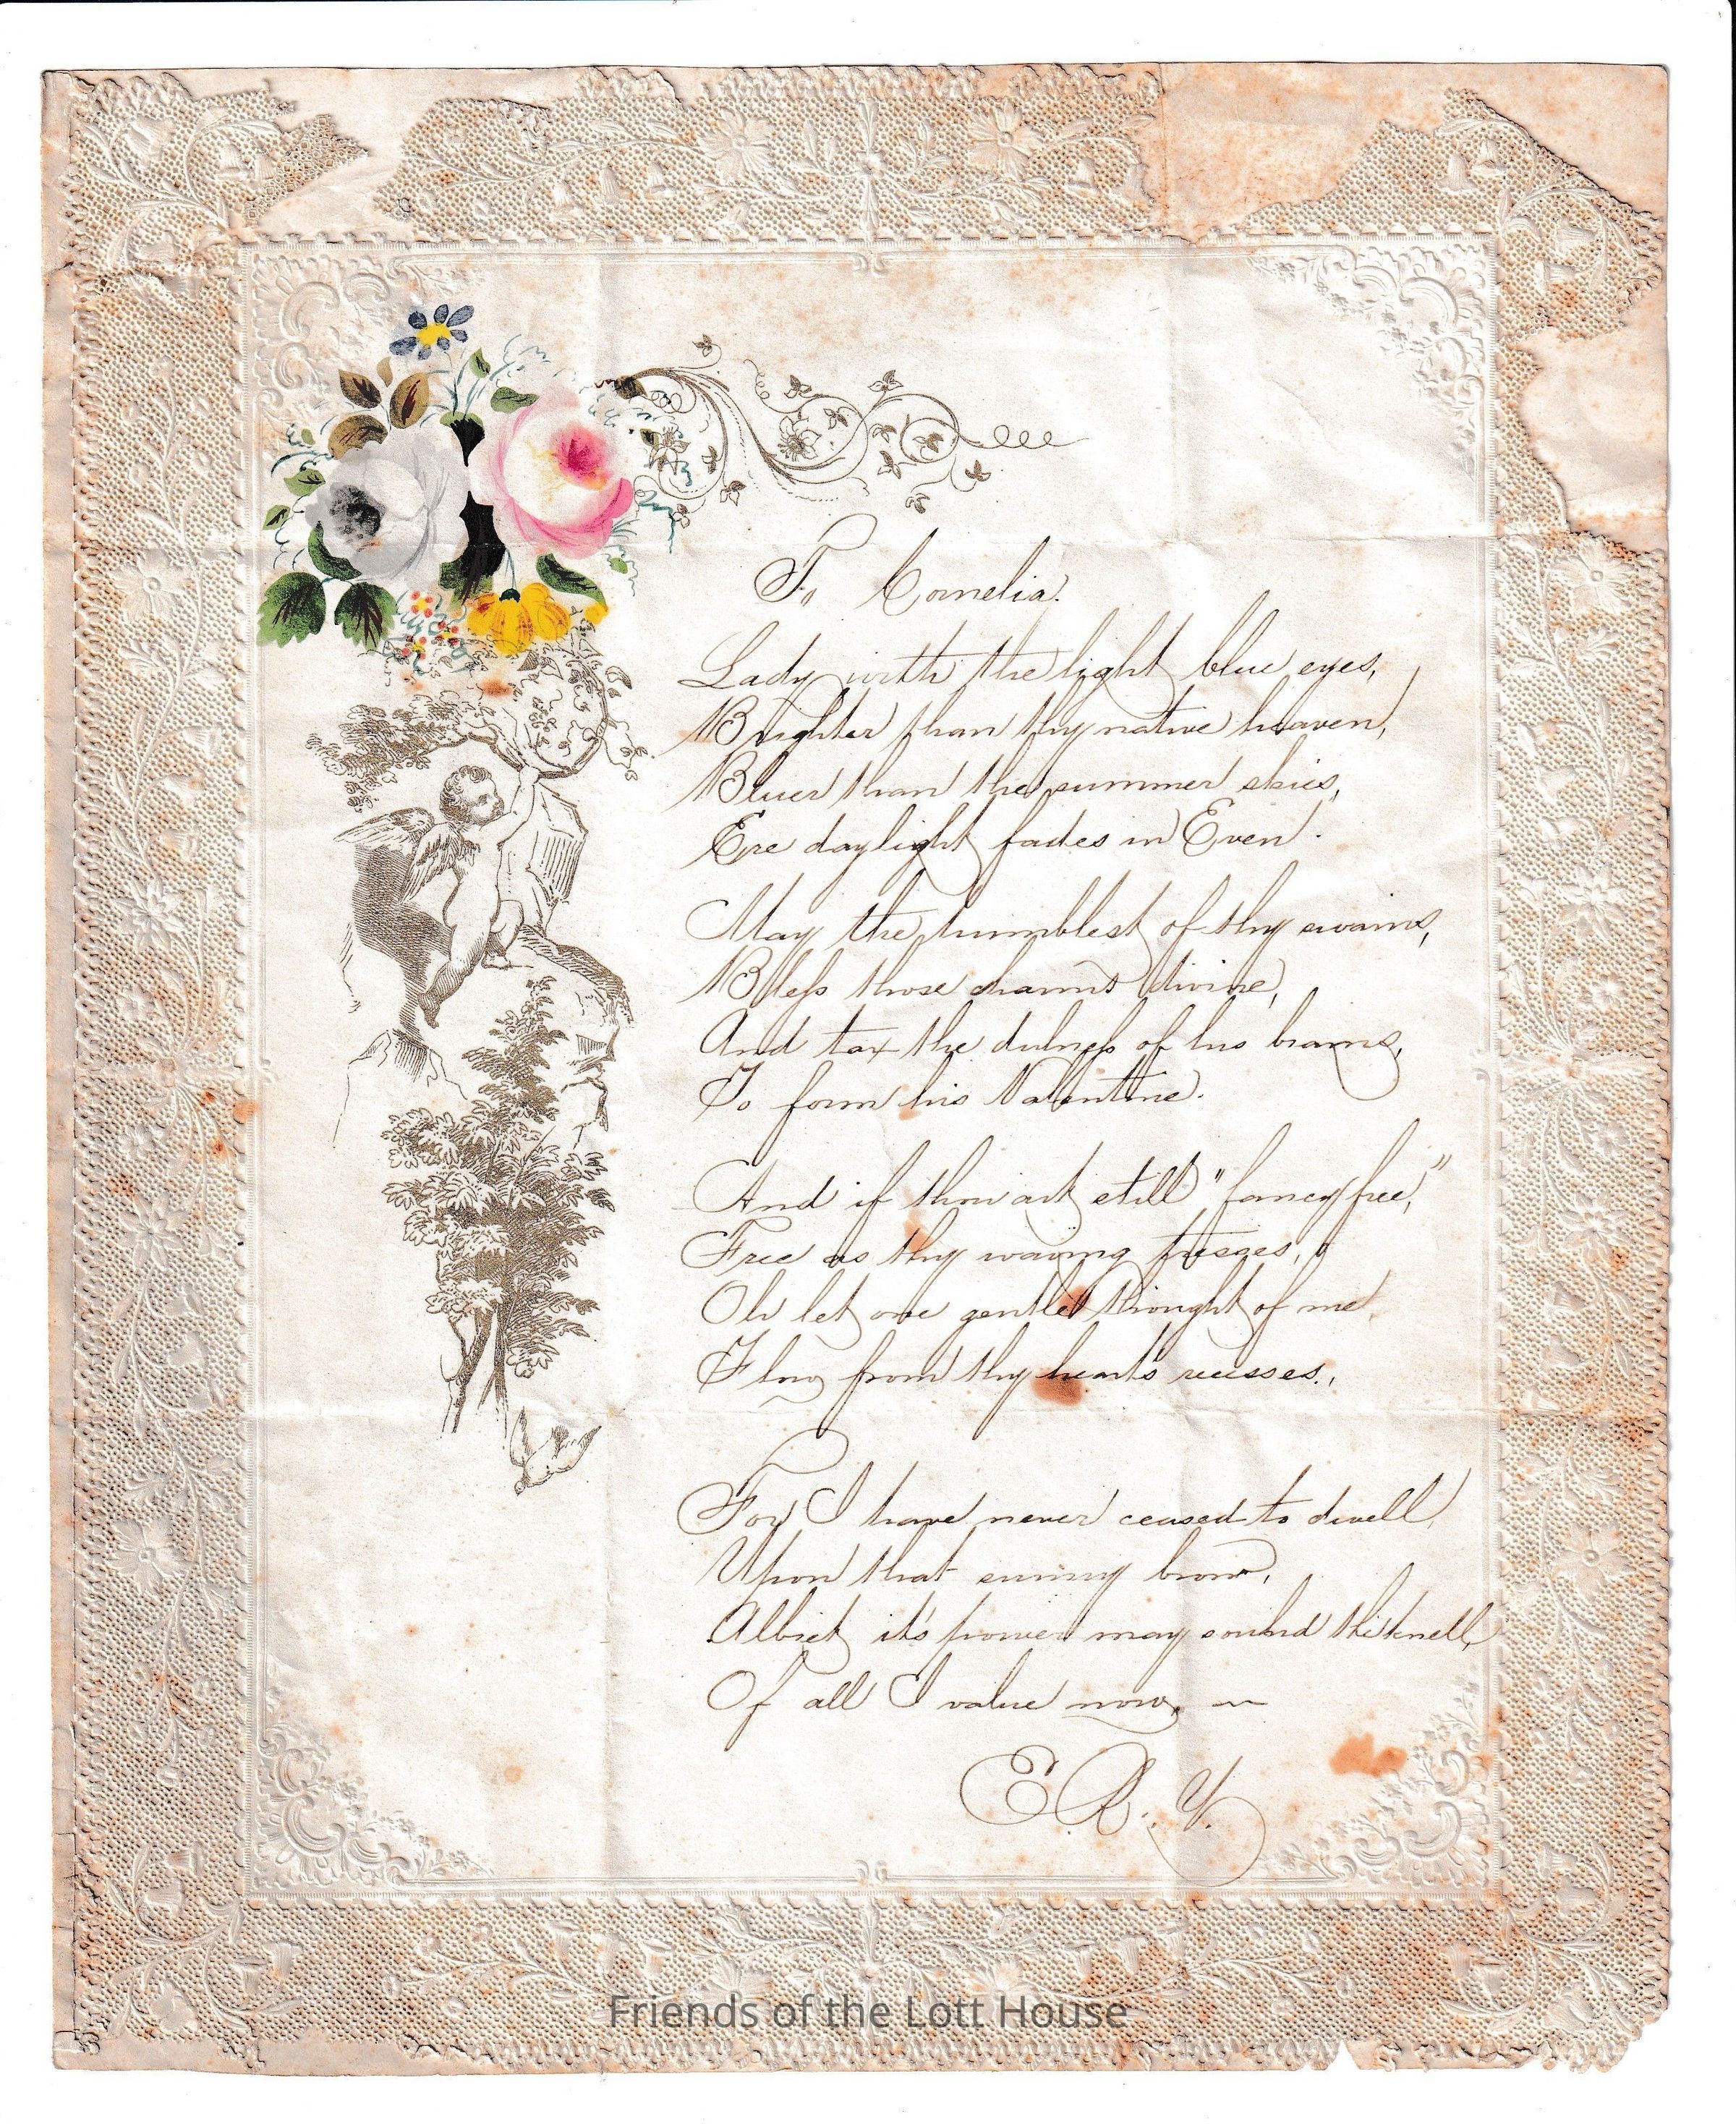 To Cornelia.
Lady with the light blue eyes,
Brighter than thy native heaven,
Bluer than the summer skies,
Ere daylight fades in Even.
May the humblest of thy swains,
Bless those charms divine,
And tax the dulness of his brains,
To form his Valentine.
And if thou art still "fancy free,"
Free as thy waving tresses,
Oh let one gentle thought of me
Flow from thy hearts recesses.
For I have never ceased to dwell
Upon that sunny brow,
Albiet it's power may sound the knell
Of all I value now,
E. R. Y.
Friends of the Lott House